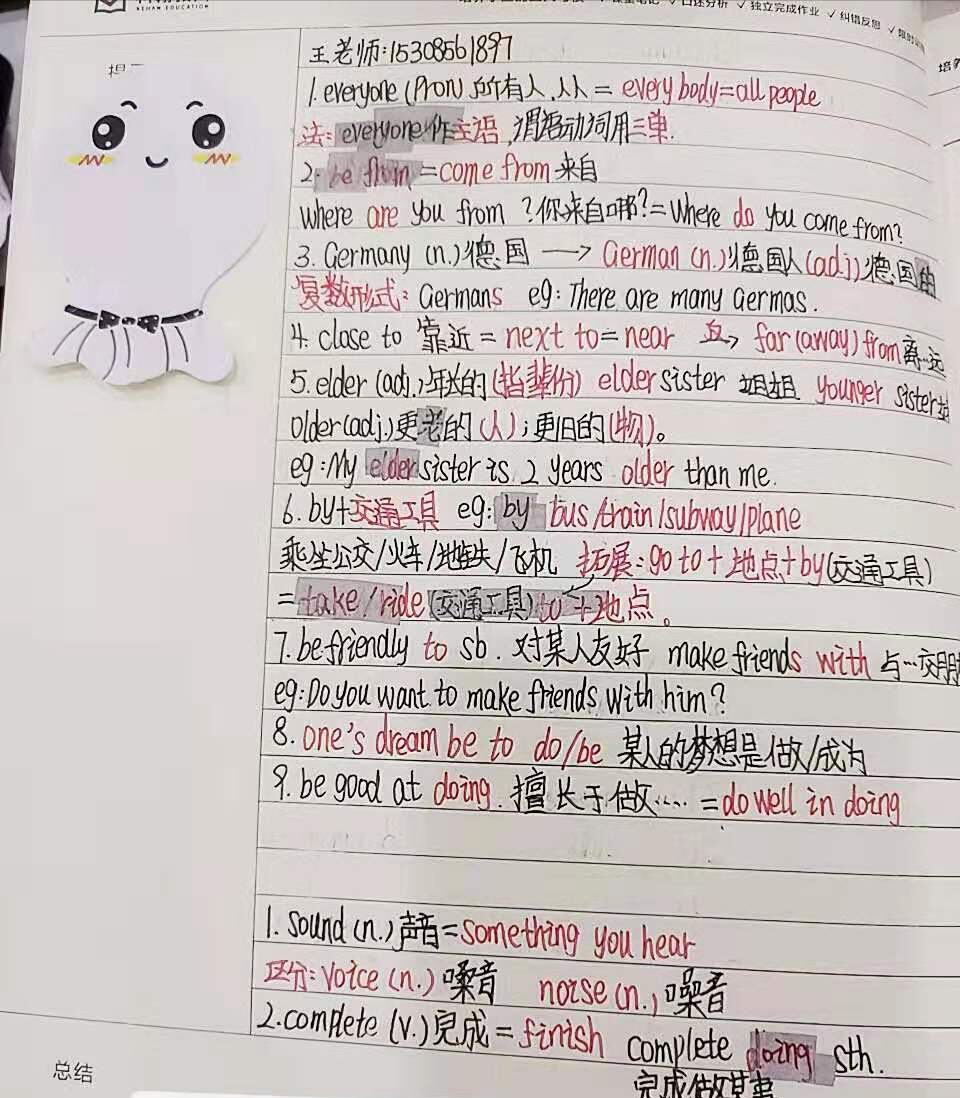 BEHAN EDUCATION
✓口述分析 ✓独立完成作业 ✓纠错反思
王老师:15308561897
1.everyone(pron.)所有人,人人= everybody=all people
法: everyone作主语,谓语动词用三单.
2.be from=come from来自
where are you from?你来自哪?=Where do you come from?
3.Germany (n.)德国→German (n.)德国人(adj.)德国的
复数形式: Germans eg: There are many Germas.
4.close to 靠近=next to=near 反→ far (away) from离…远
5.elder (adj.)年长的(指辈份) elder sister 姐姐 younger sister妹
older(adj.)更老的(人);更旧的(物)。
eg:My elder sister is 2 years older than me.
6.by+交通工具 eg: by bus/train/subway/plane
乘坐公交/火车/地铁/飞机 拓展:go to+地点+by(交通工具)
=take/ride(交通工具) to+地点。
7.be friendly to sb.对某人友好 make friends with 与…交朋
eg:Do you want to make friends with him?
8.one's dream be to do/be 某人的梦想是做/成为
9.be good at doing.擅长于做…. =do well in doing
1.sound (n.)声音=something you hear
区分:voice (n.)嗓音 noise (n.)噪音
2.complete (v.)完成=finish complete doing sth.
完成做某事
总结